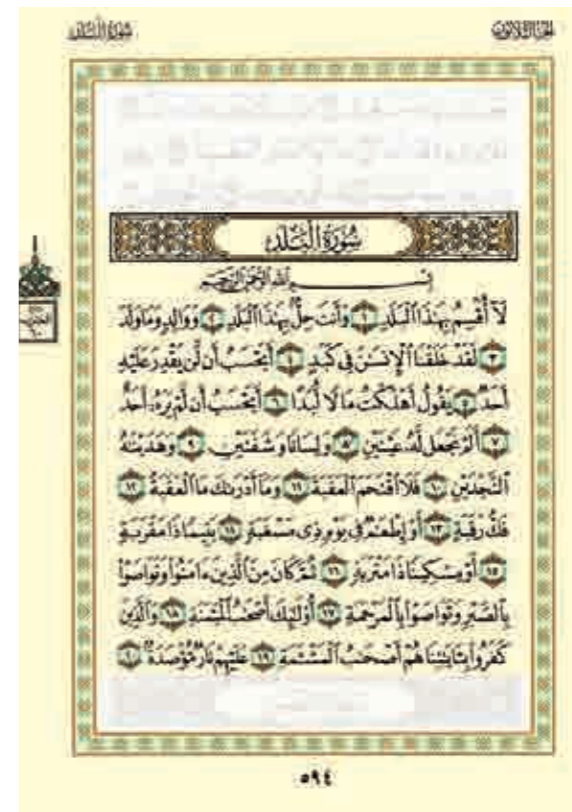 الجزء الثلاثون
سُورَةُ البَلَدِ
سُورَةُ البَلَدِ
بِسْمِ اللَّهِ الرَّحْمَٰنِ الرَّحِيمِ
لَآ أُقْسِمُ بِهَٰذَا ٱلْبَلَدِ ١ وَأَنتَ حِلُّۢ بِهَٰذَا ٱلْبَلَدِ ٢ وَوَالِدٍ وَمَا وَلَدَ
٣ لَقَدْ خَلَقْنَا ٱلْإِنسَٰنَ فِى كَبَدٍ ٤ أَيَحْسَبُ أَن لَّن يَقْدِرَ عَلَيْهِ
أَحَدٌ ٥ يَقُولُ أَهْلَكْتُ مَالًا لُّبَدًا ٦ أَيَحْسَبُ أَن لَّمْ يَرَهُۥٓ أَحَدٌ
٧ أَلَمْ نَجْعَل لَّهُۥ عَيْنَيْنِ ٨ وَلِسَانًا وَشَفَتَيْنِ ٩ وَهَدَيْنَٰهُ
ٱلنَّجْدَيْنِ ١٠ فَلَا ٱقْتَحَمَ ٱلْعَقَبَةَ ١١ وَمَآ أَدْرَىٰكَ مَا ٱلْعَقَبَةُ ١٢
فَكُّ رَقَبَةٍ ١٣ أَوْ إِطْعَٰمٌ فِى يَوْمٍ ذِى مَسْغَبَةٍ ١٤ يَتِيمًا ذَا مَقْرَبَةٍ
١٥ أَوْ مِسْكِينًا ذَا مَتْرَبَةٍ ١٦ ثُمَّ كَانَ مِنَ ٱلَّذِينَ ءَامَنُوا۟ وَتَوَاصَوْا۟
بِٱلصَّبْرِ وَتَوَاصَوْا۟ بِٱلْمَرْحَمَةِ ١٧ أُو۟لَٰٓئِكَ أَصْحَٰبُ ٱلْمَيْمَنَةِ ١٨ وَٱلَّذِينَ
كَفَرُوا۟ بِـَٔايَٰتِنَا هُمْ أَصْحَٰبُ ٱلْمَشْـَٔمَةِ ١٩ عَلَيْهِمْ نَارٌ مُّؤْصَدَةٌۢ ٢٠
٥٩٤